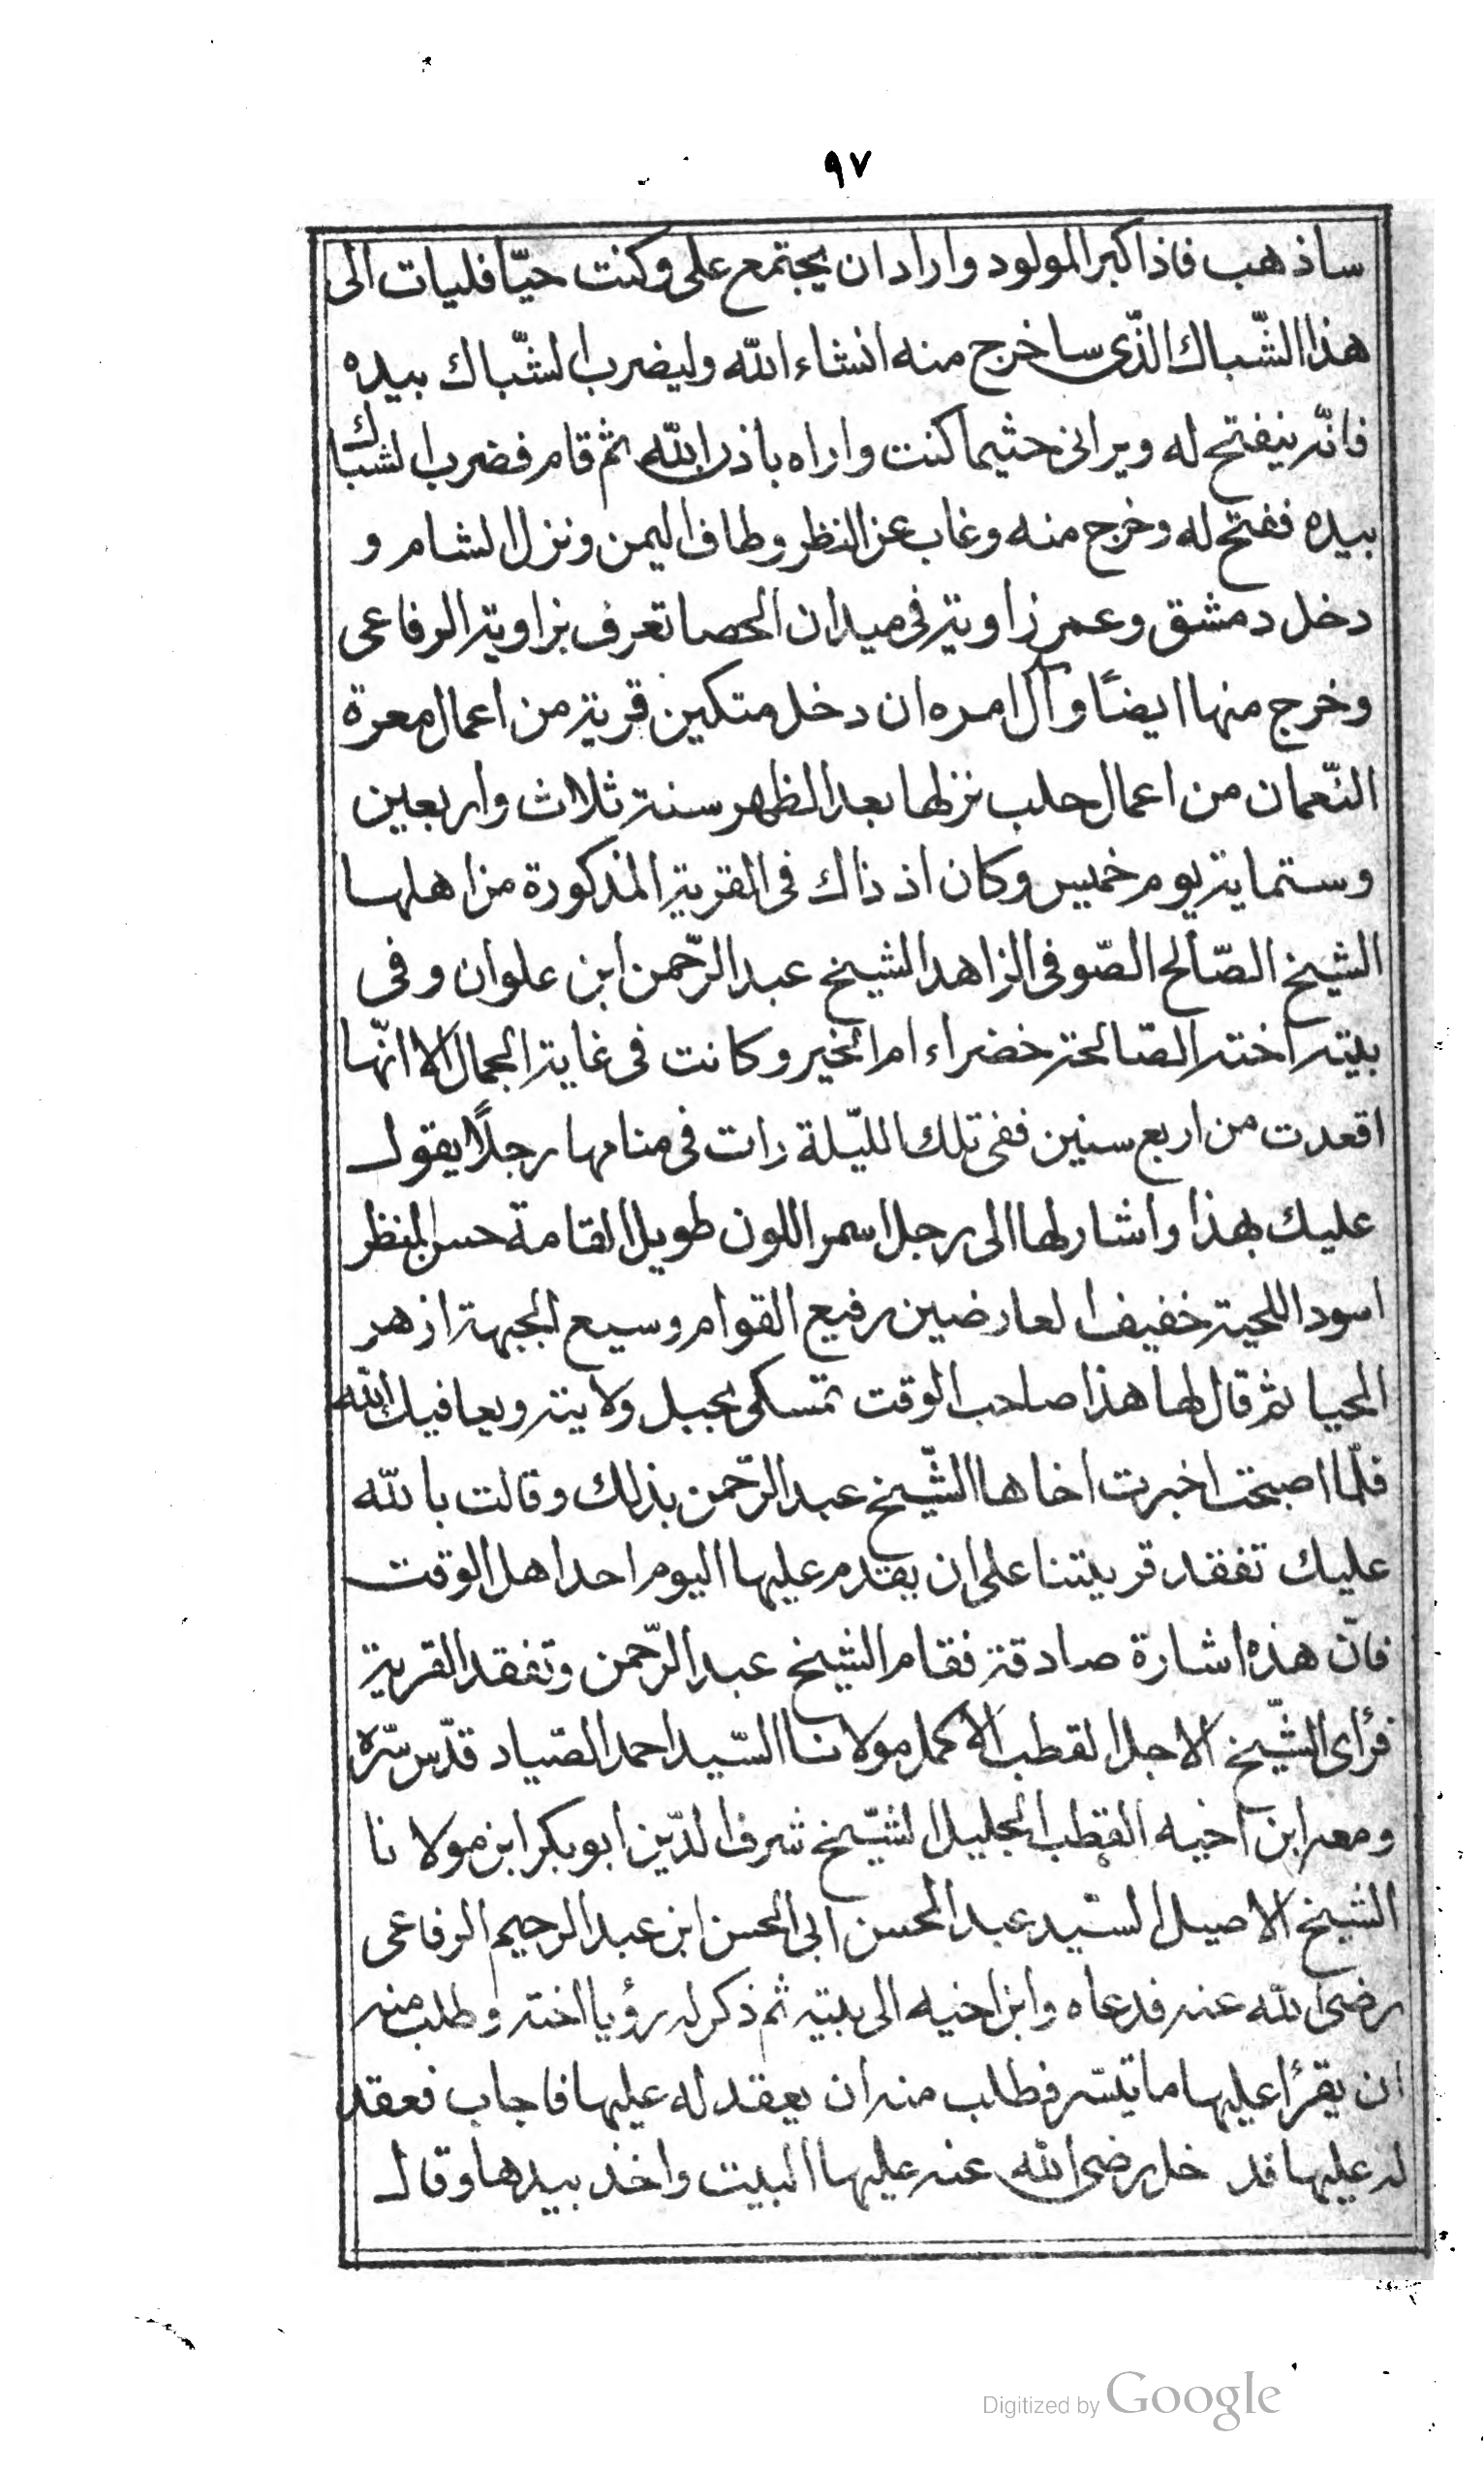 ٩٧
ساذهب فاذا كبر المولود واراد ان يجتمع على وكنت حيّا فليات الى
هذا الشّباك الذّى ساخرج منه انشاء الله وليضرب الشّباك بيده
فانّه ينفتح له ويرانى حثيما كنت واراه باذن الله ثم قام فضرب الشباك
بيده ففتح له وخرج منه وغاب عن النظر وطاف اليمن ونزل الشام و
دخل دمشق وعمر زاوية فى ميدان الحصا تعرف بزاوية الرفاعى
وخرج منها ايضًا وآل امره ان دخل متكين قرية من اعمال معرة
النّعمان من اعمال حلب نزلها بعد الظهر سنة ثلاث واربعين
وستماية يوم خميس وكان اذ ذاك فى القرية المذكورة من اهلها
الشيخ الصّالح الصّوفى الزاهد الشيخ عبد الرّحمن ابن علوان وفى
بيته اخته الصّالحة خضراء ام الخير وكانت فى غاية الجمال الا انّها
اقعدت من اربع سنين ففى تلك اللّيلة رات فى منامها رجلًا يقول
عليك بهذا واشار لها الى رجل اسمر اللون طويل القامة حسن المنظر
اسود اللحية خفيف العارضين رفيع القوام وسيع الجبهة ازهر
المحيا ثم قال لها هذا صاحب الوقت تمسكى بحبل ولايته ويعافيك الله
فلّما اصبحت اخبرت اخاها الشّيخ عبد الرّحمن بذلك وقالت بالله
عليك تفقد قريتنا على ان يقدم عليها اليوم احد اهل الوقت
فانّ هذه اشارة صادقة فقام الشيخ عبد الرّحمن وتفقد القرية
فرأى الشّيخ الاجل القطب الاكمل مولانا السّيد احمد الصّياد قدّس سرّه
ومعه ابن اخيه القطب الجليل الشّيخ شرف الدّين ابو بكر ابن مولانا
الشيخ الاصيل السّيد عبد المحسن ابى الحسن ابن عبد الرحيم الرفاعى
رضى الله عنه فدعاه وابن اخيه الى بيته ثم ذكر له رؤيا اخته وطلب منه
ان يقرأ عليها ما تيسّر فطلب منه ان يعقد له عليها فاجاب فعقد
له عليها فد خل رضى الله عنه عليها البيت واخذ بيدها وقال
Digitized by Google